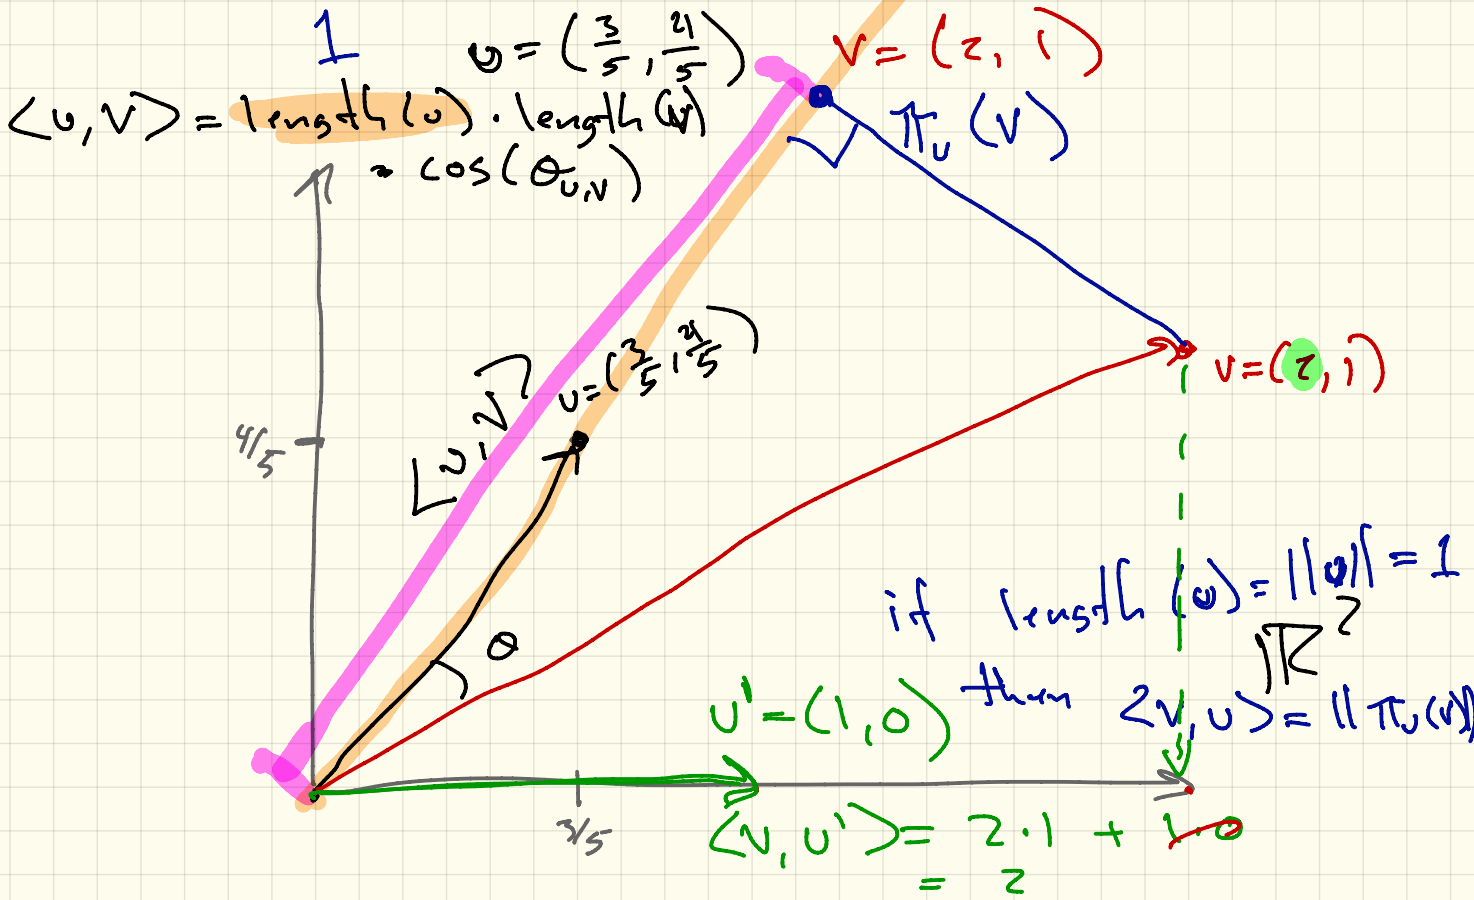 1
u = (3/5, 4/5)
v = (2, 1)
<u, v> = length(u) · length(v)
· cos(θu,v)
πu(v)
u=(3/5, 4/5)
<u, v>
v=(2, 1)
4/5
θ
if length(u) = ||u|| = 1
ℝ²
then <v, u> = ||πu(v)||
u' = (1, 0)
3/5
<v, u'> = 2·1 + 1·0
= 2